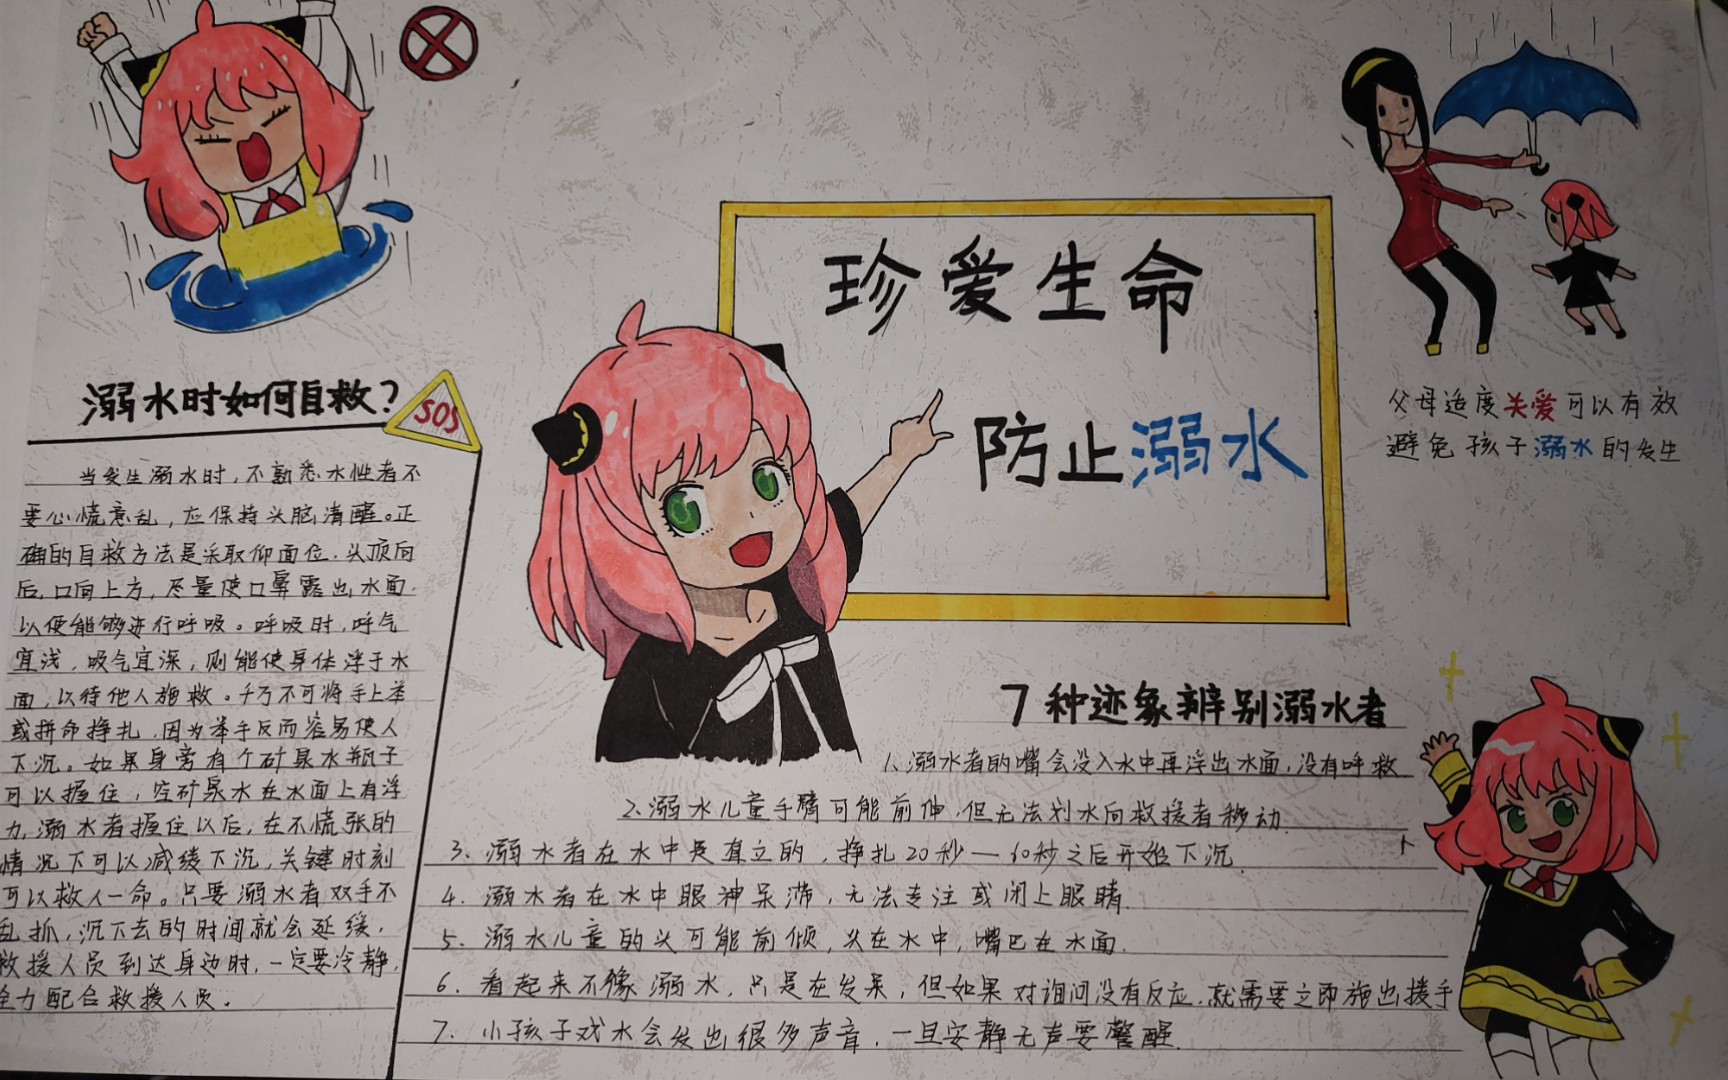 珍爱生命
防止溺水
父母适度关爱可以有效
避免孩子溺水的发生
溺水时如何自救?
SOS
当发生溺水时,不熟悉水性者不
要心慌意乱,应保持头脑清醒。正
确的自救方法是采取仰面位.头顶向
后,口向上方,尽量使口鼻露出水面.
以便能够进行呼吸。呼吸时,呼气
宜浅,吸气宜深,则能使身体浮于水
面,以待他人施救。千万不可将手上举
或拼命挣扎,因为举手反而容易使人
下沉。如果身旁有个矿泉水瓶子
可以握住,空矿泉水在水面上有浮
力,溺水者握住以后,在不慌张的
情况下可以减缓下沉,关键时刻
可以救人一命。只要溺水者双手不
乱抓,沉下去的时间就会延缓,
救援人员到达身边时,一定要冷静,
全力配合救援人员。
7种迹象辨别溺水者
1、溺水者的嘴会没入水中再浮出水面,没有呼救
2、溺水儿童手臂可能前伸,但无法划水向救援者移动.
3、溺水者在水中是直立的,挣扎20秒—60秒之后开始下沉
4、溺水者在水中眼神呆滞,无法专注或闭上眼睛.
5、溺水儿童的头可能前倾,头在水中,嘴巴在水面.
6、看起来不像溺水,只是在发呆,但如果对询问没有反应,就需要立即施出援手
7、小孩子戏水会发出很多声音,一旦安静无声要警醒.